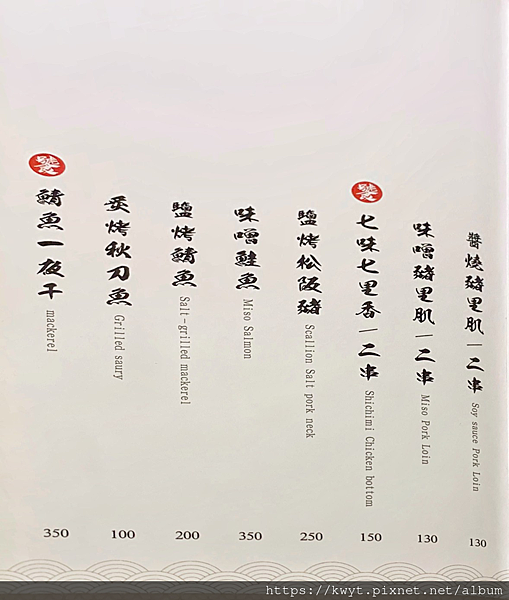 醬燒豬里肌|二串
Soy sauce Pork Loin
130
味噌豬里肌|二串
Miso Pork Loin
130
七味七里香|二串
Shichimi Chicken bottom
150
鹽烤松阪豬
Scallion Salt pork neck
250
味噌鮭魚
Miso Salmon
350
鹽烤鯖魚
Salt-grilled mackerel
200
炙烤秋刀魚
Grilled saury
100
鯖魚一夜干
mackerel
350
https://kwyt.pixnet.net/album